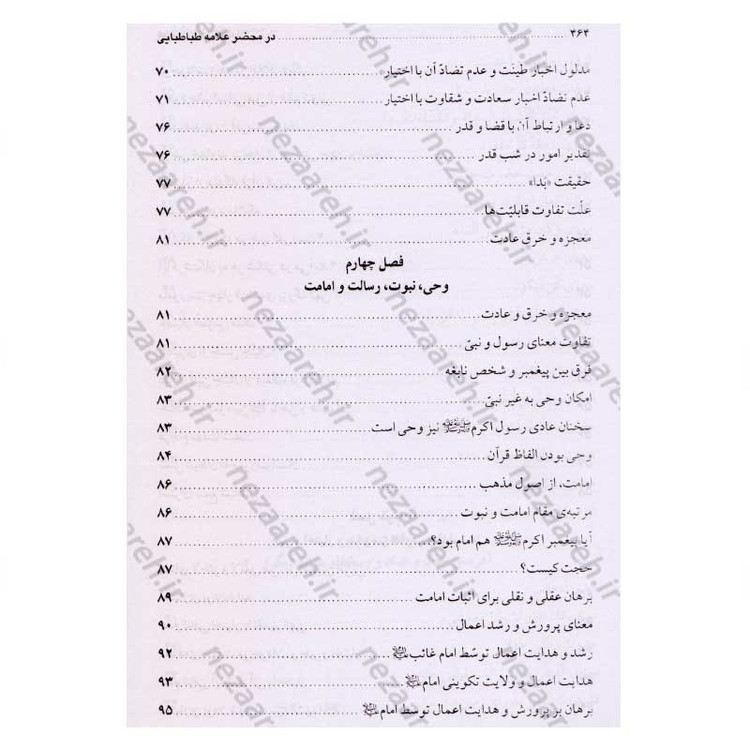 ۳۶۴ ........ در محضر علامه طباطبایی
مدلول اخبار طینت و عدم تضادّ آن با اختیار ........ ۷۰
عدم تضادّ اخبار سعادت و شقاوت با اختیار ........ ۷۱
دعا و ارتباط آن با قضا و قدر ........ ۷۶
تقدیر امور در شب قدر ........ ۷۶
حقیقت «بَدا» ........ ۷۷
علّت تفاوت قابلیّت‌ها ........ ۷۷
معجزه و خرق عادت ........ ۸۱
فصل چهارم
وحی، نبوت، رسالت و امامت
معجزه و خرق و عادت ........ ۸۱
تفاوت معنای رسول و نبیّ ........ ۸۱
فرق بین پیغمبر و شخص نابغه ........ ۸۲
امکان وحی به غیر نبیّ ........ ۸۳
سخنان عادی رسول اکرم ﷺ نیز وحی است ........ ۸۳
وحی بودن الفاظ قرآن ........ ۸۴
امامت، از اصول مذهب ........ ۸۶
مرتبه‌ی مقام امامت و نبوت ........ ۸۶
آیا پیغمبر اکرم ﷺ هم امام بود؟ ........ ۸۷
حجت کیست؟ ........ ۸۷
برهان عقلی و نقلی برای اثبات امامت ........ ۸۹
معنای پرورش و رشد اعمال ........ ۹۰
رشد و هدایت اعمال توسّط امام غائب ........ ۹۲
هدایت اعمال و ولایت تکوینی امام ........ ۹۳
برهان بر پرورش و هدایت اعمال توسط امام ........ ۹۵
nezaareh.ir